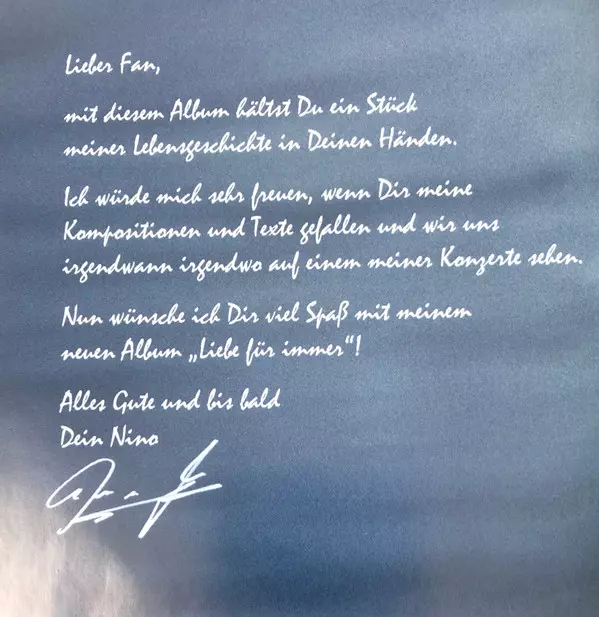 Lieber Fan,
mit diesem Album hältst Du ein Stück
meiner Lebensgeschichte in Deinen Händen.
Ich würde mich sehr freuen, wenn Dir meine
Kompositionen und Texte gefallen und wir uns
irgendwann irgendwo auf einem meiner Konzerte sehen.
Nun wünsche ich Dir viel Spaß mit meinem
neuen Album „Liebe für immer“!
Alles Gute und bis bald
Dein Nino